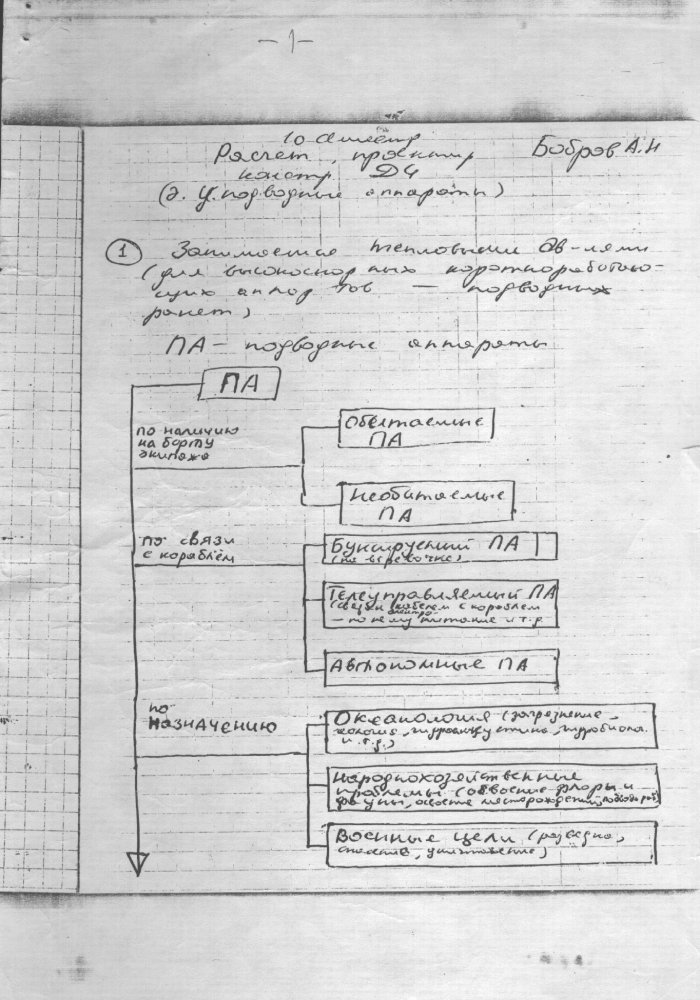 — 1 —
10 семестр
Расчёт, проектир
Бобров А.Н
констр. ДУ
(Э.У. подводные аппараты)
1 Занимается тепловыми дв-лями
(для высокоскор ных короткоработаю-
щих аппар тов — подводных
ракет)
ПА — подводные аппараты
ПА
по наличию
на борту
экипажа
Обитаемые
ПА
Необитаемые
ПА
по связи
с кораблём
Буксируемый ПА
(на верёвочке)
Телеуправляемый ПА
(связан кабелем с кораблем
электро-
— по нему питание и т.д
Автономные ПА
по
назначению
Океанология (загрязнение,
гидроакустика, гидробиол.
и т.д.)
Народнохозяйственные
проблемы (освоение флоры и
фауны, месторождений,
Военные цели (разведка,
уничтожение)